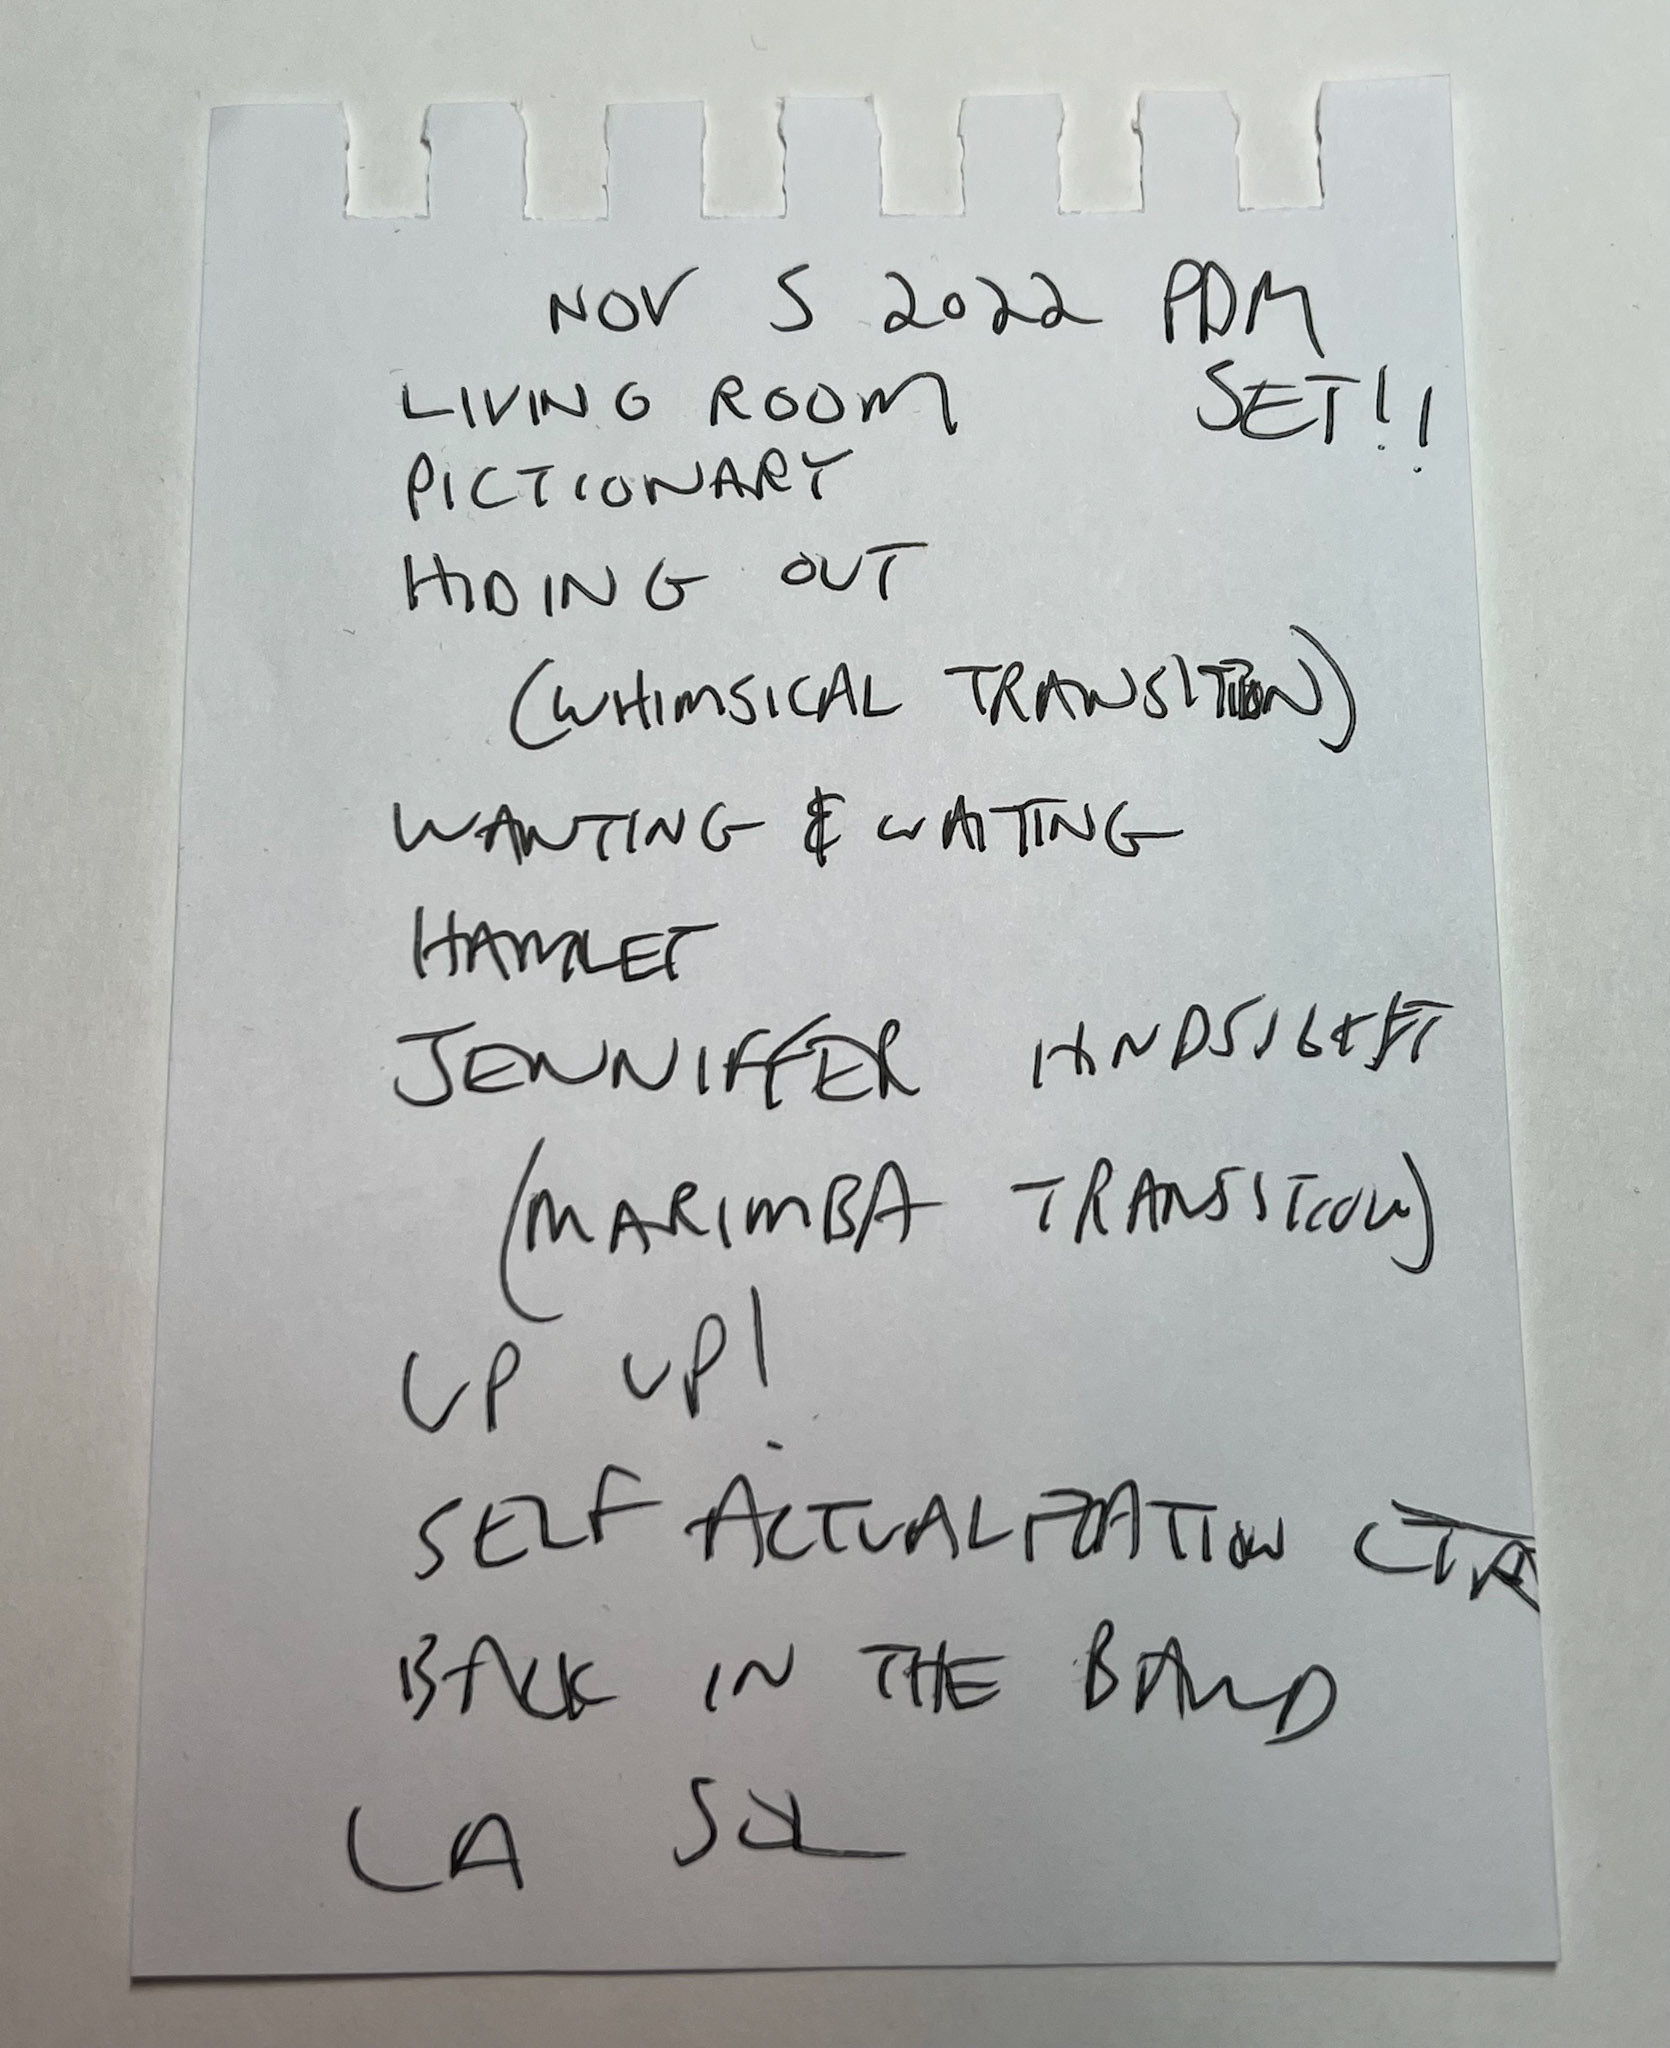 NOV 5 2022 PDM
SET!!
LIVING ROOM
PICTIONARY
HIDING OUT
(WHIMSICAL TRANSITION)
WANTING & WAITING
HAMLET
JENNIFER HINDSIGHT
(MARIMBA TRANSITION)
UP UP!
SELF ACTUALIZATION CTR
BACK IN THE BAND
LA